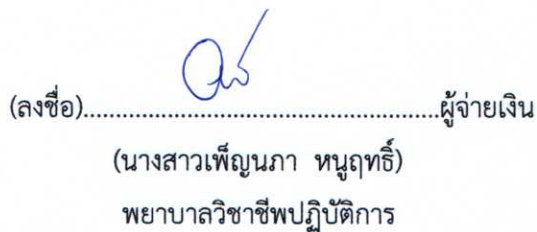 (ลงชื่อ)......................................................ผู้จ่ายเงิน
(นางสาวเพ็ญนภา หนูฤทธิ์)
พยาบาลวิชาชีพปฏิบัติการ